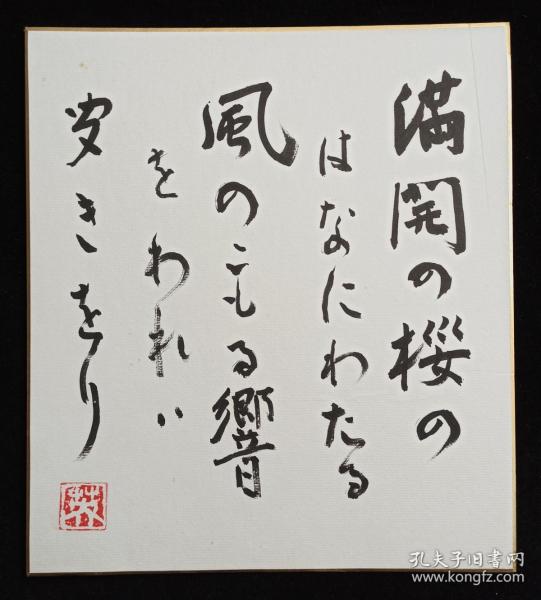 満開の桜の
はなにわたる
風のこもる響
をわれハ
聞きをり
孔夫子旧书网
www.kongfz.com